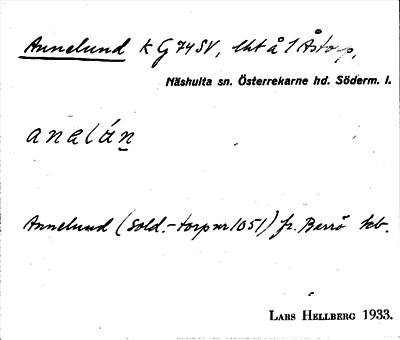 Annelund k G 74 SV, lht å 1 Åstorp,
Näshulta sn. Österrekarne hd. Söderm. l.
anelán
Annelund (Sold.-torp nr 1051) fr. Berrö kb.
LARS HELLBERG 1933.